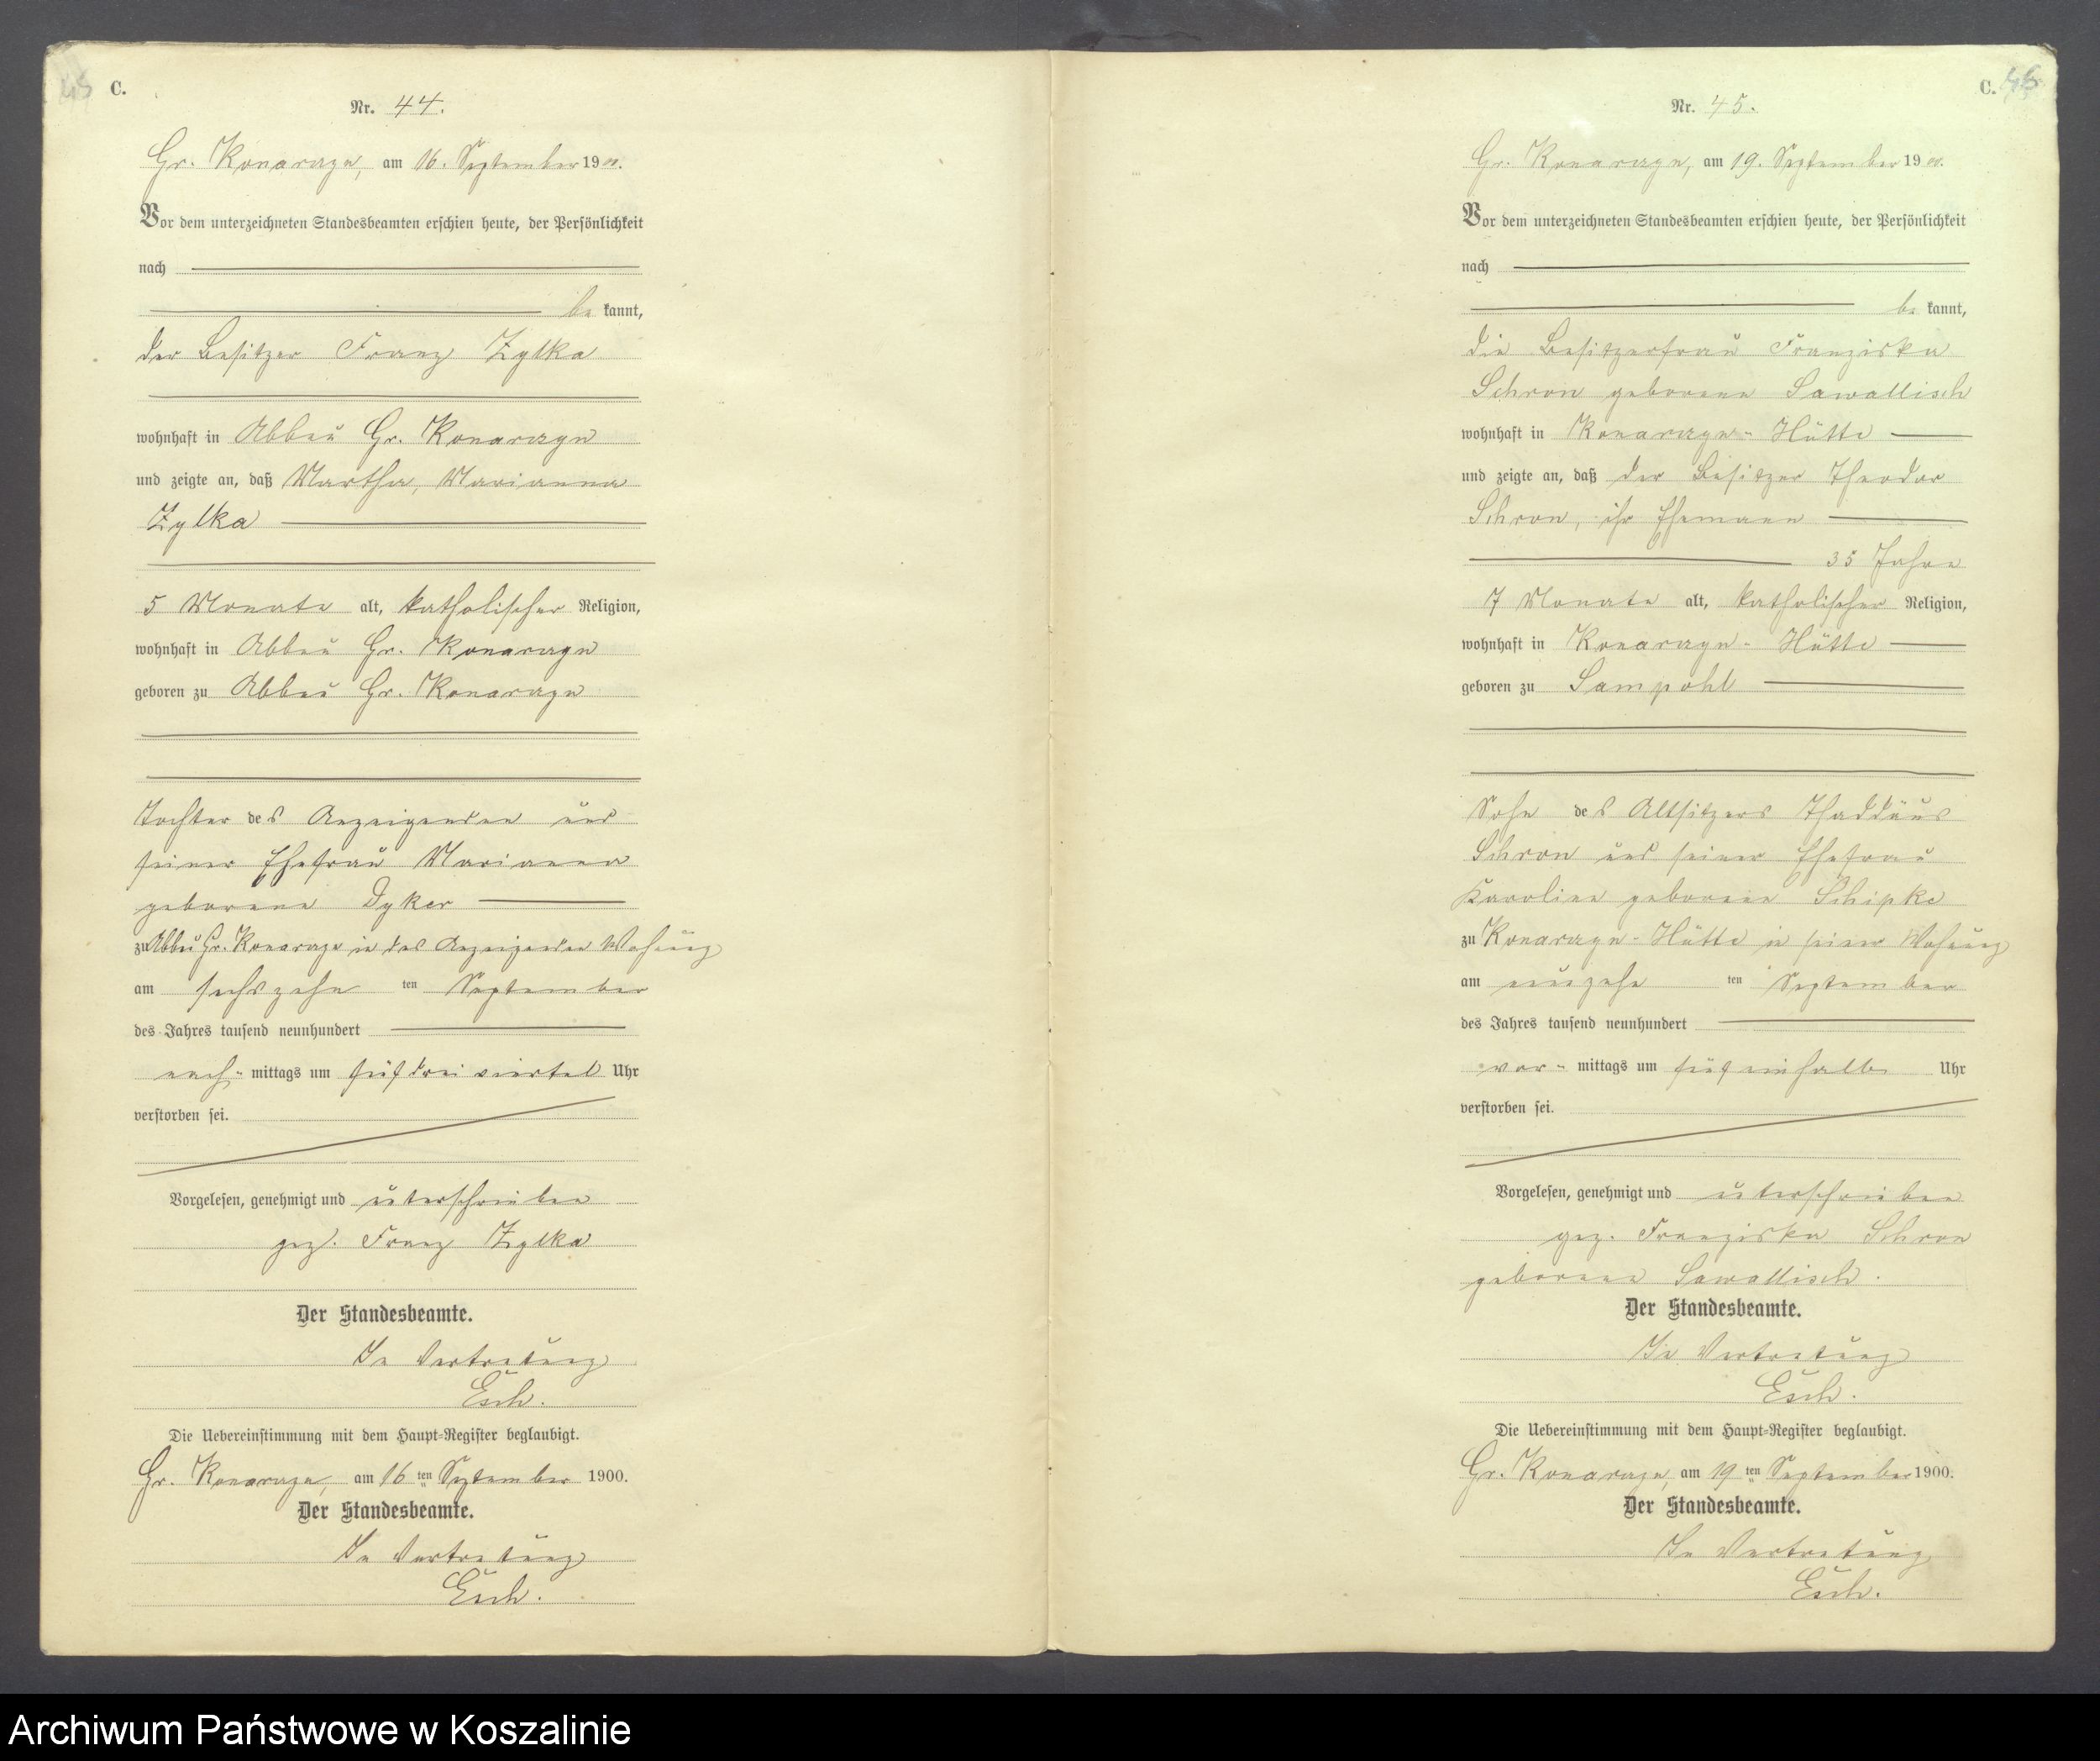 C.
Nr. 44.
Gr. Konarzyn, am 16. September 1900.
Vor dem unterzeichneten Standesbeamten erschien heute, der Persönlichkeit
nach
be kannt,
der Besitzer Franz Zylka
wohnhaft in Abbau Gr. Konarzyn
und zeigte an, daß Martha, Marianna
Zylka
5 Monate alt, katholischer Religion,
wohnhaft in Abbau Gr. Konarzyn
geboren zu Abbau Gr. Konarzyn
Tochter des Anzeigenden und
seiner Ehefrau Marianna
geborene Dyker
zu Abbau Gr. Konarzyn in des Anzeigenden Wohnung
am sechszehn ten September
des Jahres tausend neunhundert
nach- mittags um fünf dreiviertel Uhr
verstorben sei.
Vorgelesen, genehmigt und unterschrieben
gez. Franz Zylka
Der Standesbeamte.
In Vertretung
Esch.
Die Uebereinstimmung mit dem Haupt-Register beglaubigt.
Gr. Konarzyn, am 16 ten September 1900.
Der Standesbeamte.
In Vertretung
Esch.
C.
Nr. 45.
Gr. Konarzyn, am 19. September 1900.
Vor dem unterzeichneten Standesbeamten erschien heute, der Persönlichkeit
nach
be kannt,
die Besitzerfrau Franziska
Schron geborene Sawallisch
wohnhaft in Konarzyn-Hütte
und zeigte an, daß der Besitzer Theodor
Schron, ihr Ehemann
35 Jahre
7 Monate alt, katholischer Religion,
wohnhaft in Konarzyn-Hütte
geboren zu Sampohl
Sohn des Altsitzers Thaddäus
Schron und seiner Ehefrau
Karoline geborene Schipke
zu Konarzyn-Hütte in seiner Wohnung
am neunzehn ten September
des Jahres tausend neunhundert
vor- mittags um fünf einhalb Uhr
verstorben sei.
Vorgelesen, genehmigt und unterschrieben
gez. Franziska Schron
geborene Sawallisch.
Der Standesbeamte.
In Vertretung
Esch.
Die Uebereinstimmung mit dem Haupt-Register beglaubigt.
Gr. Konarzyn, am 19 ten September 1900.
Der Standesbeamte.
In Vertretung
Esch.
Archiwum Państwowe w Koszalinie